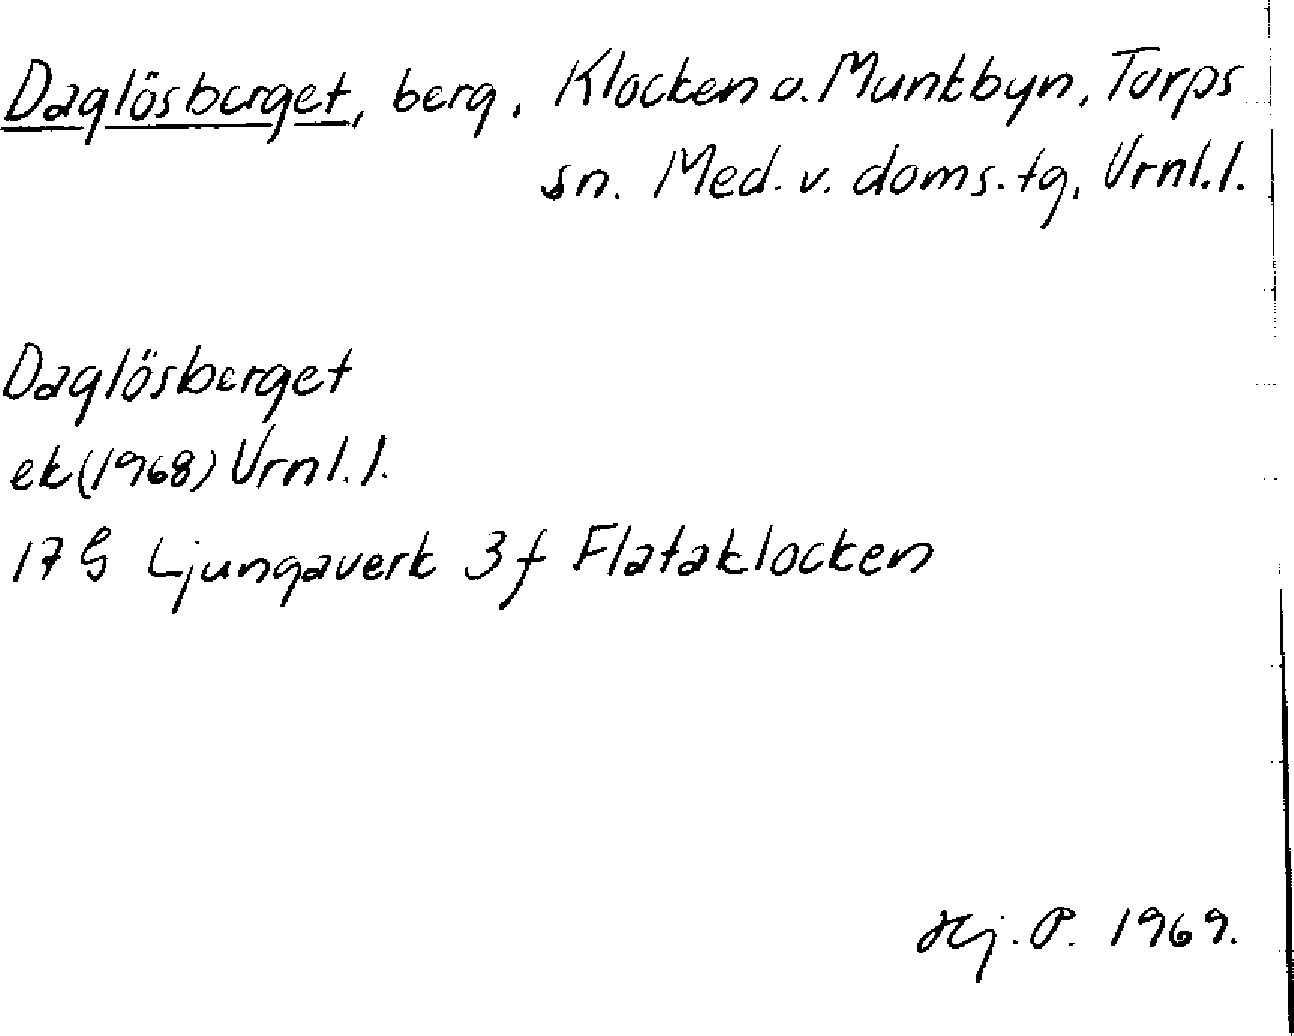 Daglösberget, berg, Klocken o. Munkbyn, Torps
sn. Med. v. doms. tg, Vrnl. l.
Daglösberget
ek (1968) Vrnl. l.
17 G Ljungaverk 3 f Flataklocken
Hj. P. 1969.